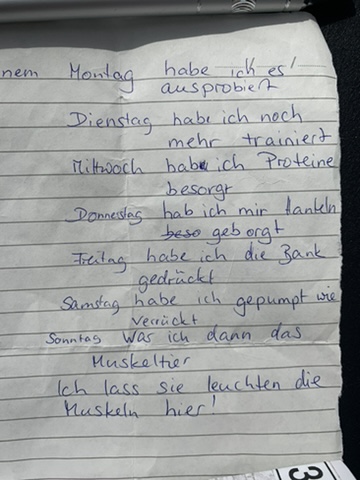 nem Montag habe ich es!
ausprobiert
Dienstag habe ich noch
mehr trainiert
Mittwoch habe ich Proteine
besorgt
Donnerstag hab ich mir Hanteln
beso geborgt
Freitag habe ich die Bank
gedrückt
Samstag habe ich gepumpt wie
verrückt
Sonntag was ich dann das
Muskeltier
Ich lass sie leuchten die
Muskeln hier!
3